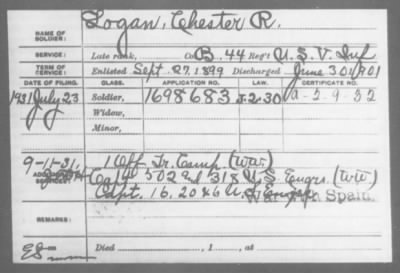 NAME OF SOLDIER: Logan, Chester R.
SERVICE: Late rank, Co. B, 44 Reg't U.S.V. Inf
TERM OF SERVICE: Enlisted Sept. 27, 1899 Discharged June 30 1901
DATE OF FILING. CLASS. APPLICATION NO. CERTIFICATE NO.
1931 July 23 Soldier, 1698683
Widow,
Minor,
9-11-31, 1 Off. Tr. Camp. (W.W.)
ADDITIONAL SERVICES: Capt 502 318 U.S. Engrs. (W.W.)
Capt. 16, 20 46 Spain
REMARKS:
Died , 1 , at